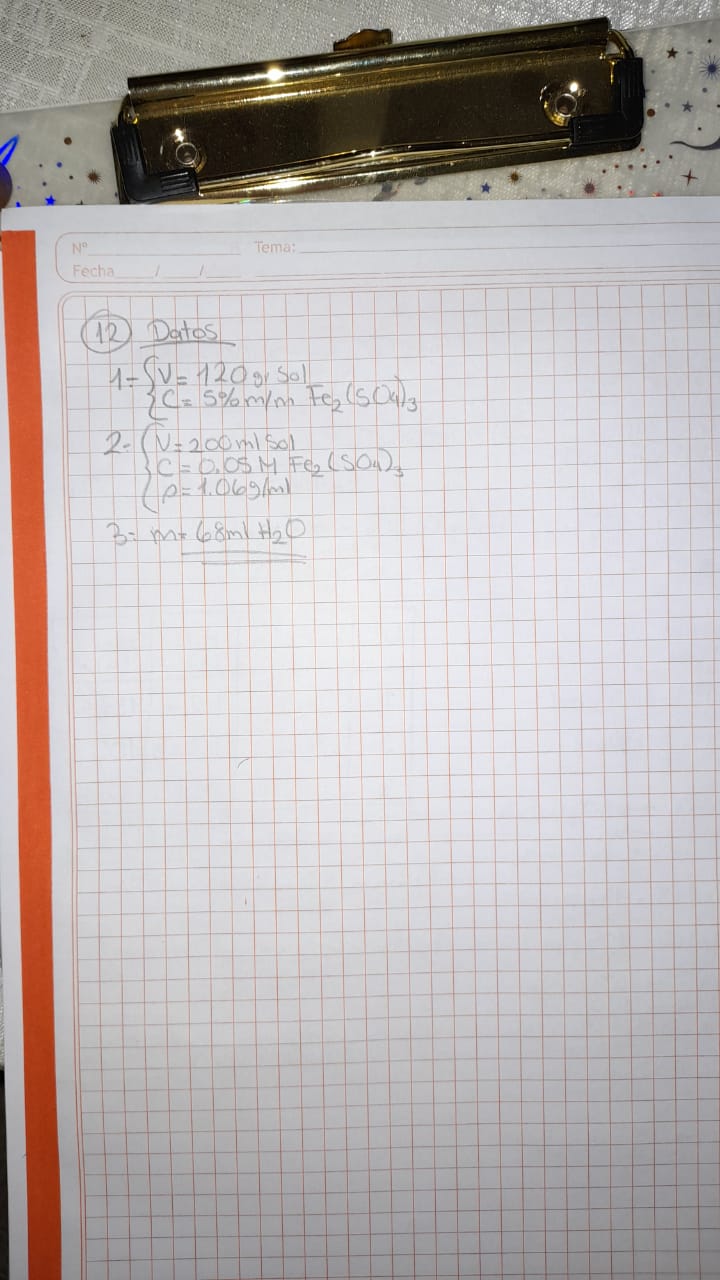 Nº Tema:
Fecha / /
12 Datos
1- V = 120 gr Sol
C = 5% m/m Fe2(SO4)3
2- V = 200 ml Sol
C = 0.05 M Fe2(SO4)3
ρ = 1.06 g/ml
3- m = 68 ml H2O